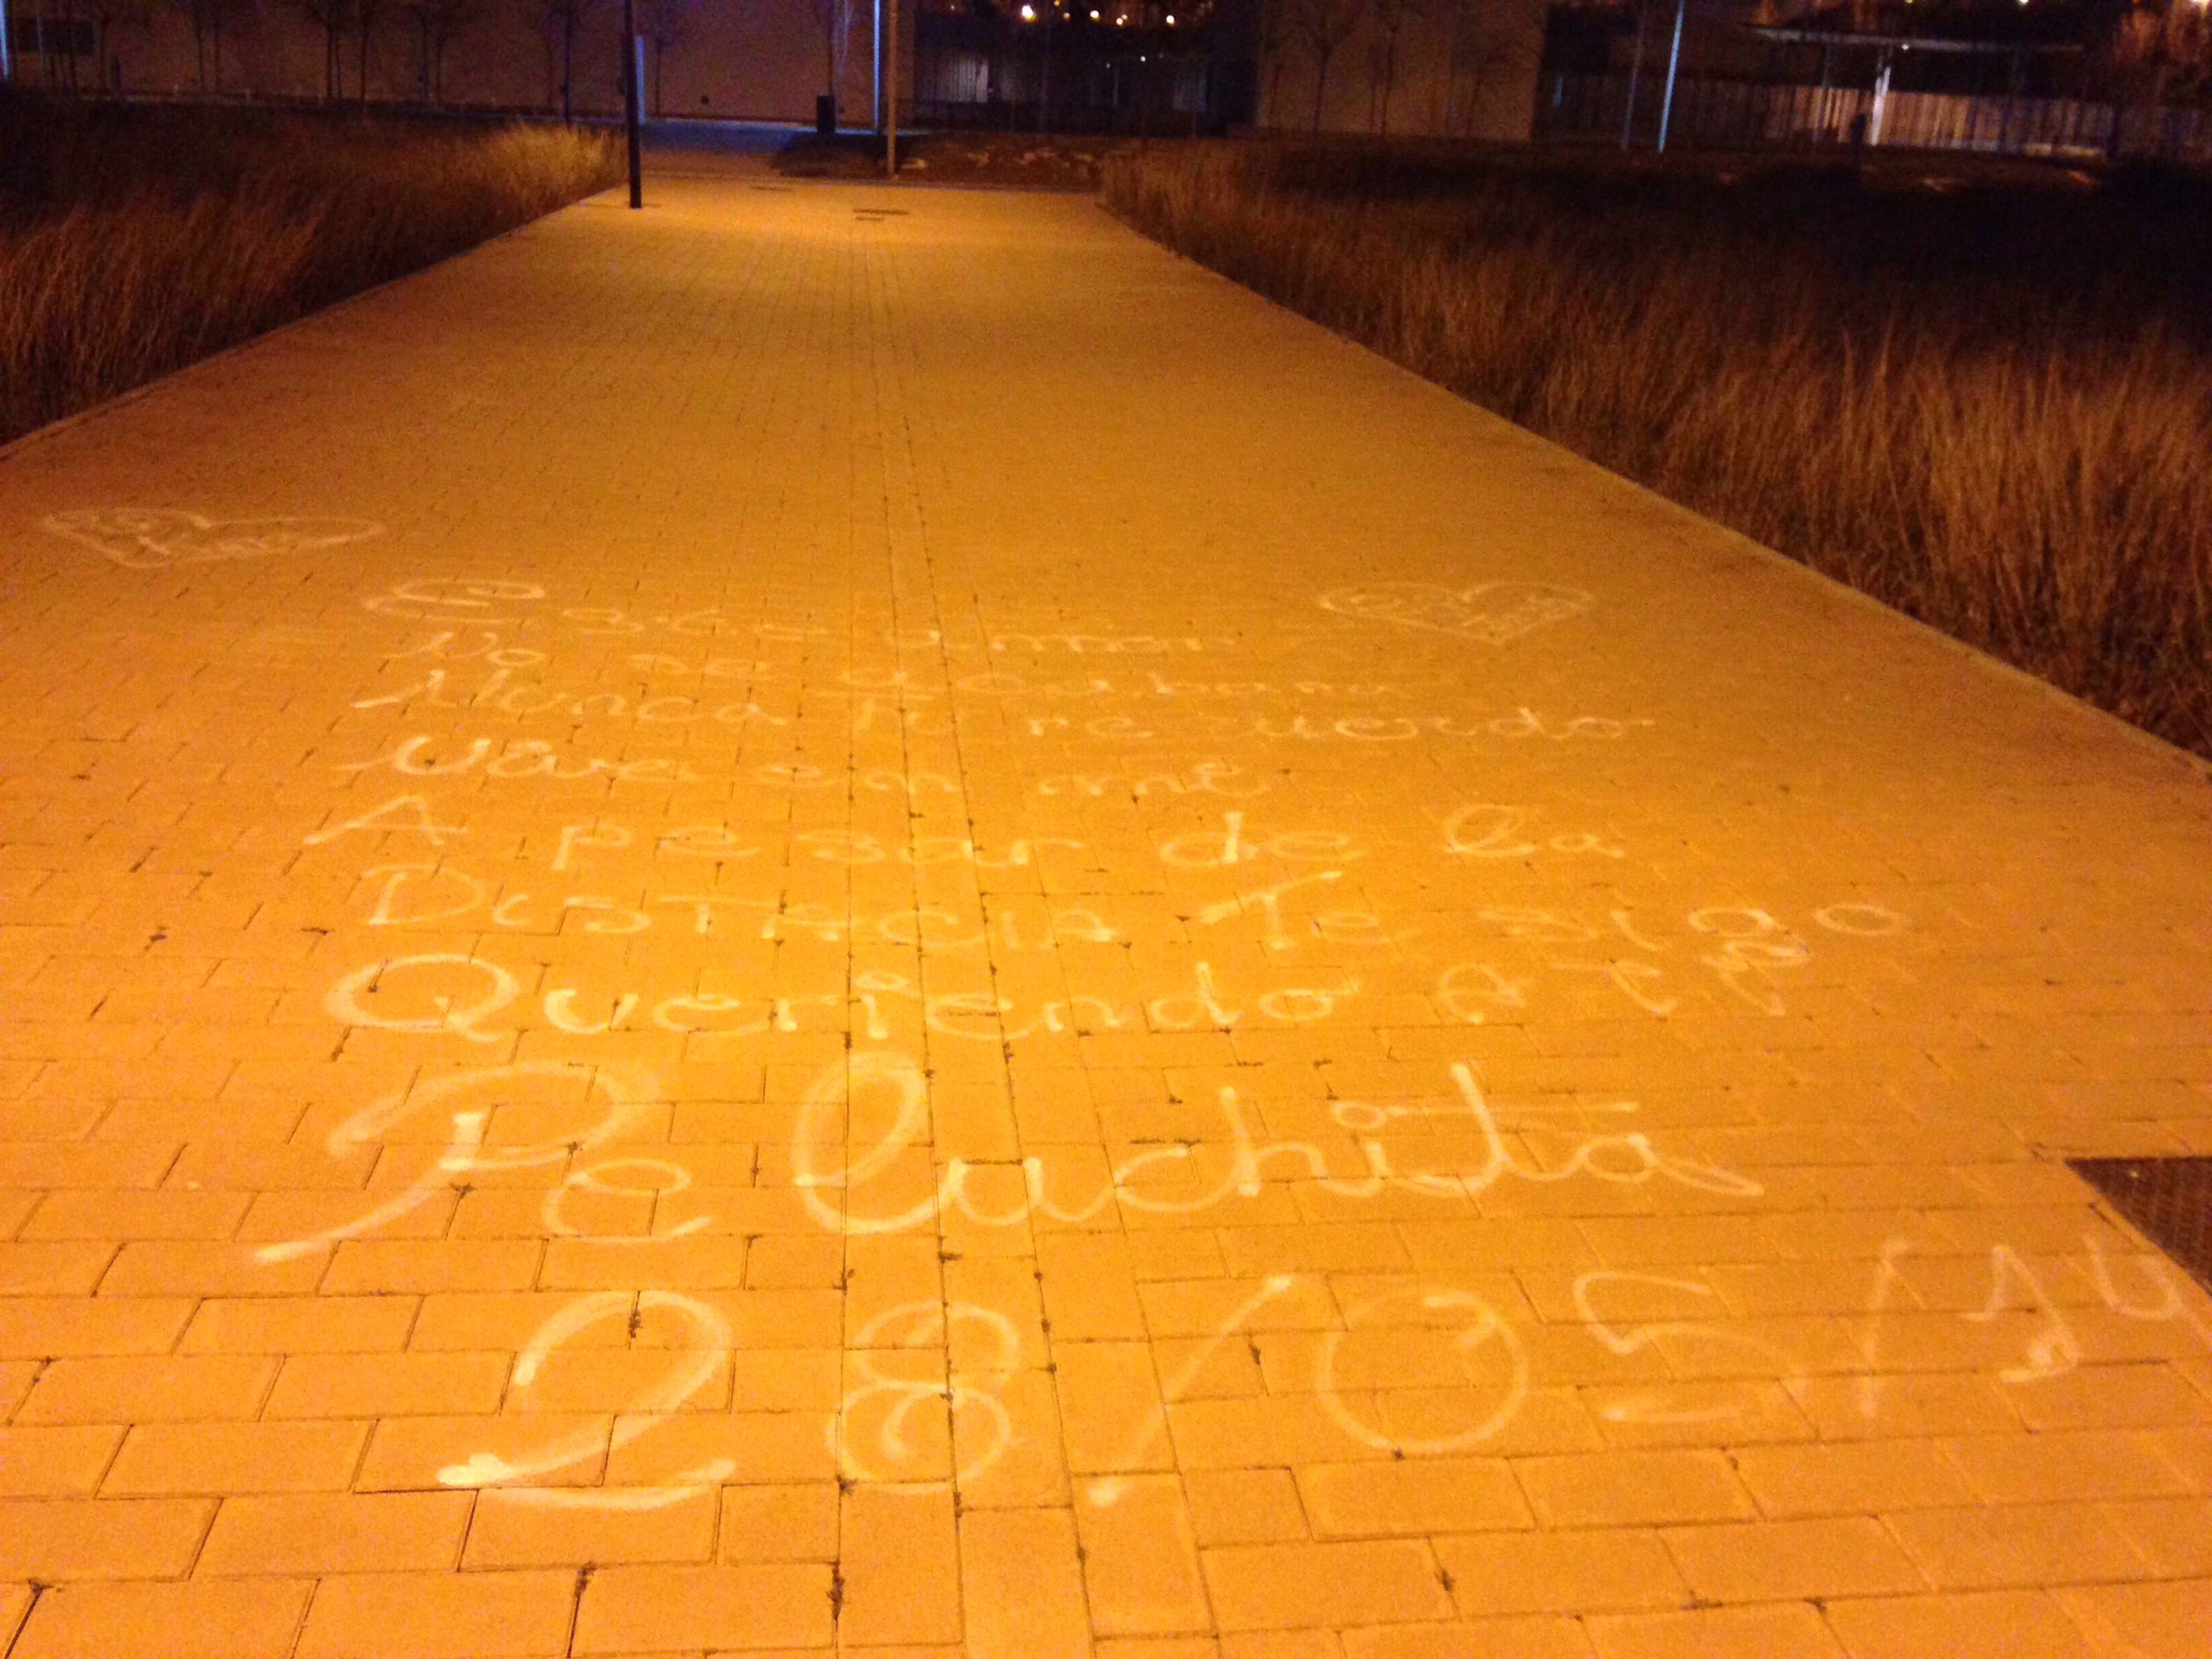 Este amor
No se acabara
Nunca Tu recuerdo
vive en mi
A pesar de la
DISTACIA Te sigo
Queriendo A ti
Peluchita
28/05/14